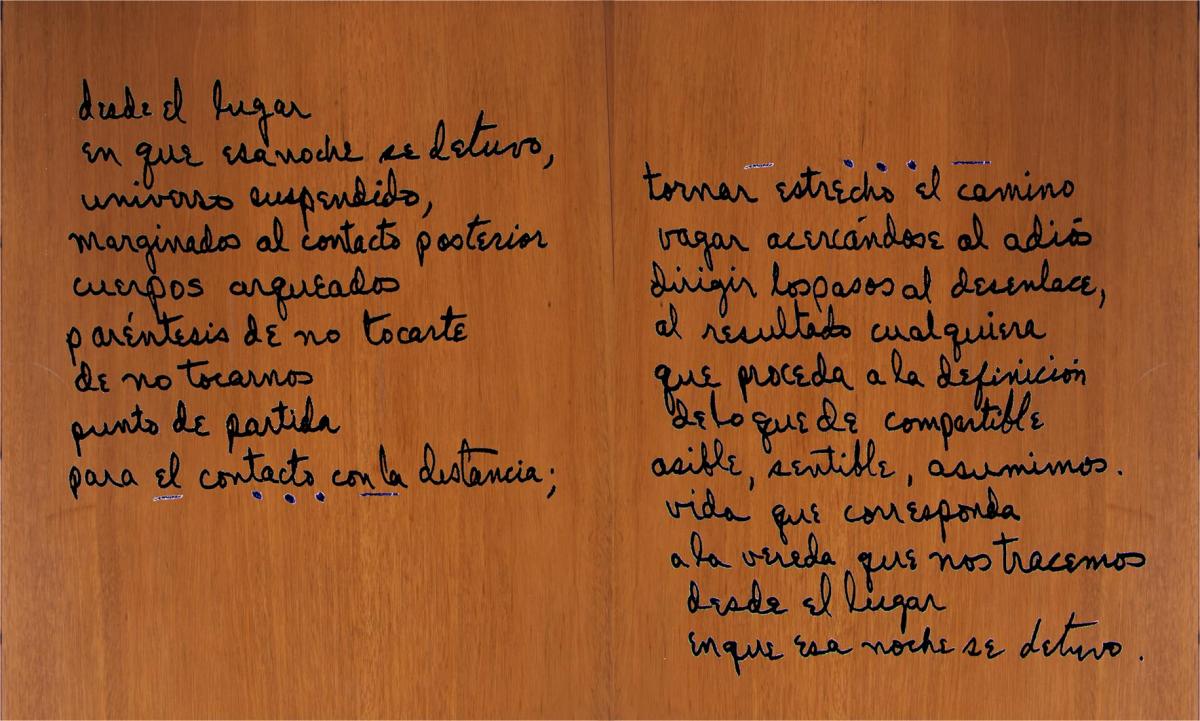 desde el lugar
en que esa noche se detuvo,
universo suspendido,
marginados al contacto posterior
cuerpos arqueados
paréntesis de no tocarte
de no tocarnos
punto de partida
para el contacto con la distancia;
tornar estrecho el camino
vagar acercándose al adiós
dirigir los pasos al desenlace,
al resultado cualquiera
que proceda a la definición
de lo que de compartible
asible, sentible, asumimos.
vida que corresponda
a la vereda que nos tracemos
desde el lugar
en que esa noche se detuvo.